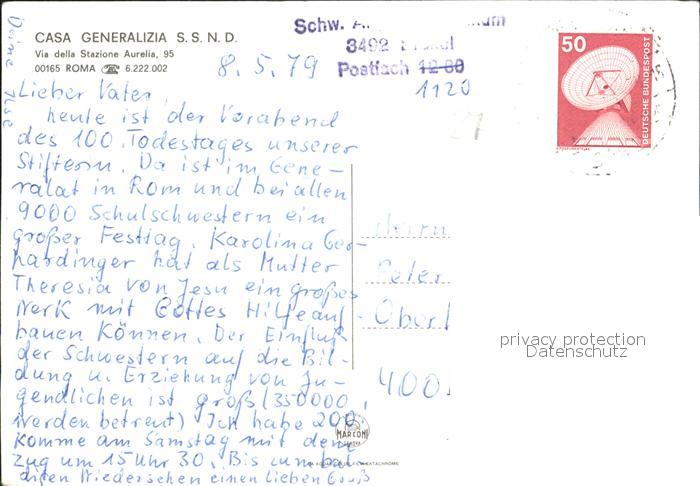 CASA GENERALIZIA S.S.N.D.
Via della Stazione Aurelia, 95
00165 ROMA ☎ 6.222.002
8.5.79
Schw.
3492
Postfach 12 80
1120
50
DEUTSCHE BUNDESPOST
Lieber Vater,
heute ist der Vorabend
des 100. Todestages unserer
Stifterin. Da ist im Gene-
ralat in Rom und bei allen
9000 Schulschwestern ein
großer Festtag. Karolina Ger-
hardinger hat als Mutter
Theresia von Jesu ein großes
Werk mit Gottes Hilfe auf-
bauen können. Der Einfluß
der Schwestern auf die Bil-
dung u. Erziehung von Ju-
gendlichen ist groß (350000
werden betreut) Ich habe 200,
komme am Samstag mit dem
Zug um 15 Uhr 30. Bis zum bal-
digen Wiedersehen einen lieben Gruß
Deine
Herrn
Peter
Ober
400
privacy protection
Datenschutz
MARCONI